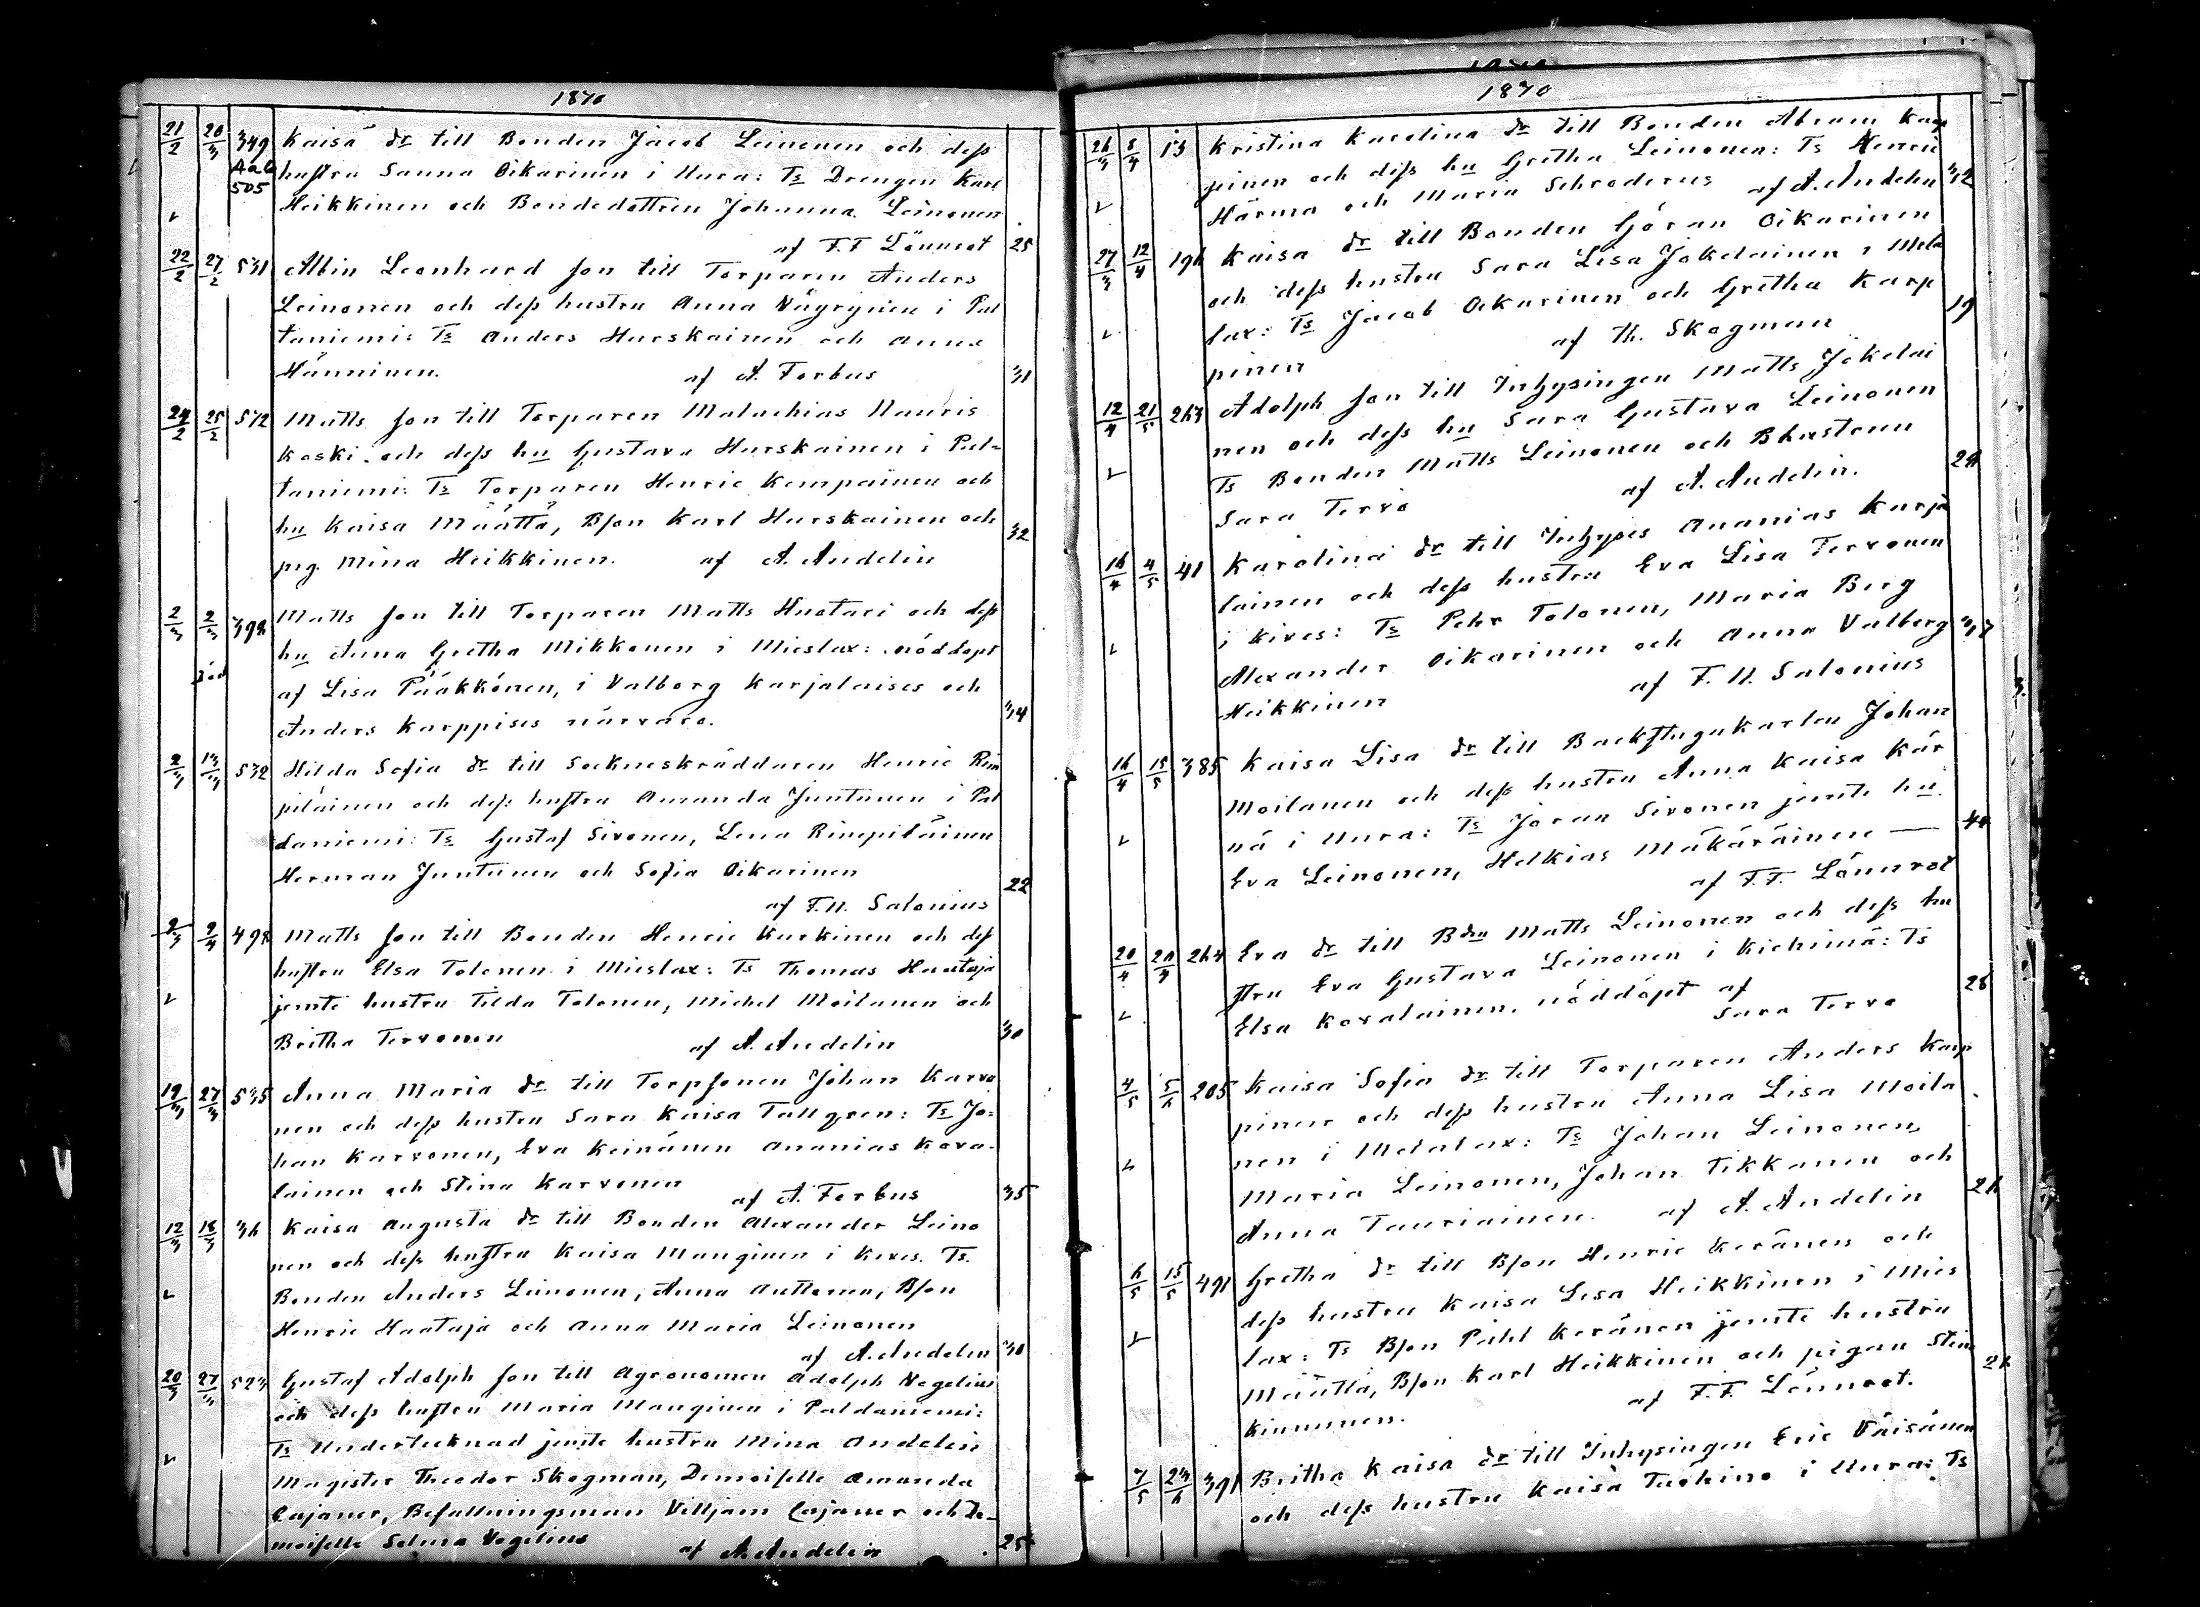 1870
21/2 20/3 349 Kaisa dr till Bonden Jacob Leinonen och dess
Aala 505 hustru Sanna Oikarinen i Uura: Ts Drengen Karl
Heikkinen och Bondedottren Johanna Leinonen
af F.F Lönnrot 25
22/2 27/2 531 Albin Leonhard son till Torparen Anders
Leinonen och dess hustru Anna Väyrynen i Pal
taniemi: Ts Anders Hurskainen och Anna
Hänninen. af A. Forbus 31
24/2 25/2 572 Matts son till Torparen Malachias Nauris
koski och dess hu Gustava Hurskainen i Pal=
taniemi: Ts Torparen Henric Kempainen och
hu Kaisa Määttä, Bson Karl Hurskainen och 32
pig. Mina Heikkinen. af A. Andelin
2/3 2/3 398 Matts son till Torparen Matts Huotari och dess
hu Anna Gretha Mikkonen i Mieslax: nöddöpt
af Lisa Pääkkönen, i Valborg Karjalaises och
Anders Karppises närvaro. 34
2/3 13/3 532 Hilda Sofia dr till Sockneskräddaren Henric Rim
piläinen och dess hustru Amanda Juntunen i Pal
daniemi: Ts Gustaf Sivonen, Lena Rimpiläinen
Herman Juntunen och Sofia Oikarinen 22
af F.N. Salonius
9/3 9/4 498 Matts son till Bonden Henric Kurkinen och dess
hustru Elsa Tolonen i Mieslax: Ts Thomas Haataja
jemte hustru Tilda Tolonen, Michel Moilanen och
Britha Tervonen af A. Andelin 30
19/3 27/3 535 Anna Maria dr till Torpsonen Johan Karvo
nen och dess hustru Sara Kaisa Tallgren: Ts Jo=
han Karvonen, Eva Keinänen Ananias Kova-
lainen och Stina Karvonen af A. Forbus 35
12/3 18/3 36 Kaisa Augusta dr till Bonden Alexander Leino
nen och dess hustru Kaisa Manginen i Kives. Ts.
Bonden Anders Leinonen, Anna Anttonen, Bson
Henric Haataja och Anna Maria Leinonen
af A. Andelin 30
20/3 27/3 523 Gustaf Adolph son till Agronomen Adolph Vegelius
och dess hustru Maria Manginen i Paldaniemi:
Ts Undertecknad jemte hustru Mina Andelin
Magister Theodor Skogman, Demoiselle Amanda
Cajaner, Befallningsman Villjam Cajaner och De=
moiselle Selma Vegelius af A. Andelin 25
1870
26/3 3/4 13 Kristina Karolina dr till Bonden Abram Karp
pinen och dess hu Gretha Leinonen: Ts Henric
Härma och Maria Schroderus af A. Andelin 32
27/3 12/4 196 Kaisa dr till Bonden Göran Oikarinen
och dess hustru Sara Lisa Jokelainen i Mela
lax: Ts Jacob Oikarinen och Gretha Karp 19
pinen af Th. Skogman
12/4 21/5 263 Adolph son till Inhysingen Matts Jokelai
nen och dess hu Sara Gustava Leinonen
Ts Bonden Matts Leinonen och Bhustrun 24
Sara Tervo af A. Andelin.
16/4 4/5 41 Karolina dr till Inhyses Ananias Karja
lainen och dess hustru Eva Lisa Tervonen
i Kives: Ts Pehr Tolonen, Maria Berg
Alexander Oikarinen och Anna Valberg 37
Heikkinen af F. N. Salonius
16/4 15/5 385 Kaisa Lisa dr till Backstugukarlen Johan
Moilanen och dess hustru Anna Kaisa Kär
nä i Uura: Ts Jöran Sivonen jemte hu. 40
Eva Leinonen, Helkias Mäkäräinen —
af F.F. Lönnrot
20/4 20/4 264 Eva dr till Bdn Matts Leinonen och dess hu
stru Eva Gustava Leinonen i Kiehimä: Ts
Elsa Kovalainen. nöddöpt af 26
Sara Tervo
4/5 5/6 205 Kaisa Sofia dr till Torparen Anders Karp
pinen och dess hustru Anna Lisa Moila
nen i Melalax: Ts Johan Leinonen,
Maria Leinonen, Johan Tikkanen och
Anna Tauriainen. af A. Andelin 26
6/5 15/5 491 Gretha dr till Bson Henric Keränen och
dess hustru Kaisa Lisa Heikkinen i Mies
lax: Ts Bson Påhl Keränen jemte hustru
Määttä, Bson Karl Heikkinen och pigan Stina
Kinnunen. af F.F. Lönnrot. 26
7/5 23/6 391 Britha Kaisa dr till Inhysingen Eric Väisänen
och dess hustru Kaisa Tuohino i Uura: Ts